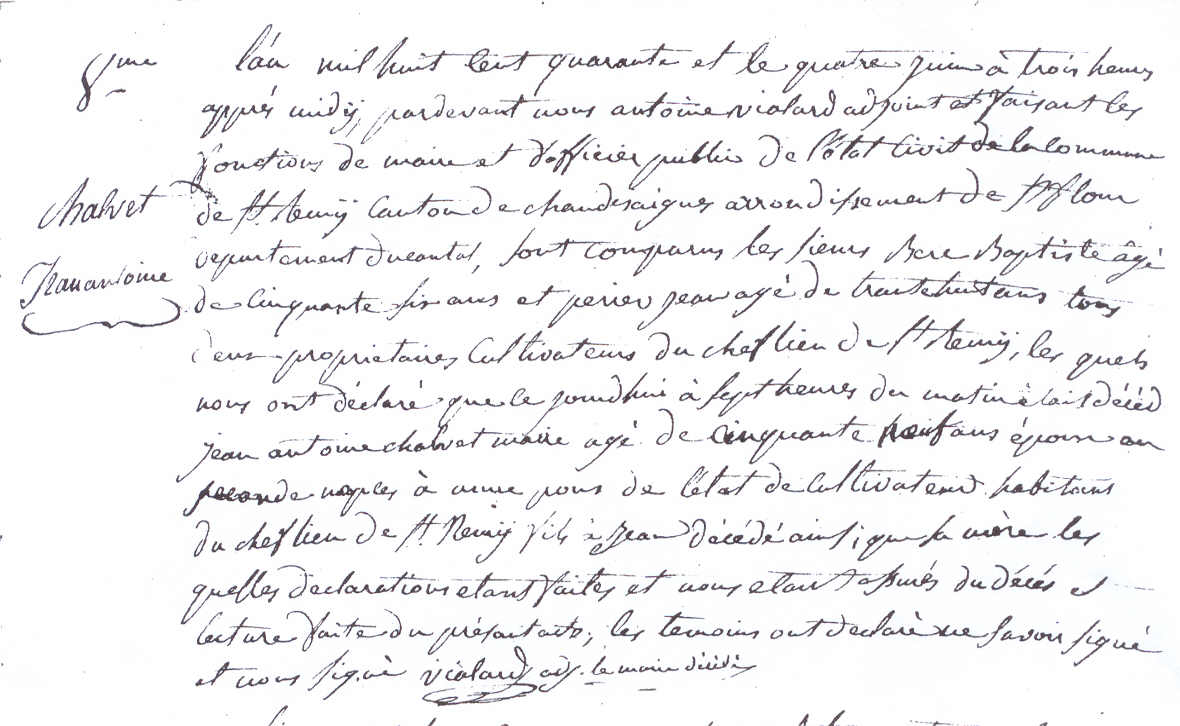 8me
l'an mil huit cent quarante et le quatre juin à trois heures
apprés midy, pardevant nous antoine vialard adjoint et faisant les
fonctions de maire et d'officier public de l'état Civil de la commune
chalvet
de St Remy Canton de chaudesaigues arrondissement de St flour
Jean antoine
departement du cantal, sont comparus les sieurs Bere Baptiste âgé
de Cinquante six ans et perier jean agé de trante huit ans tous
deux proprietaires Cultivateurs du chef lieu de St Remy, les quels
nous ont déclaré que ce jourdhui à sept heures du matin était décéd
jean antoine chalvet maire agé de cinquante neuf ans époux an
seconde nopces à anne pons de l'état de Cultivateur habitant
du chef lieu de St Remy fils à Jean décédé ainsi que sa mère les
quelles declarations etant faites et nous etant assurés du décés et
lecture faite du présant acte, les temoins ont declaré ne savoir signé
et nous signé vialard adj. le maire décédé